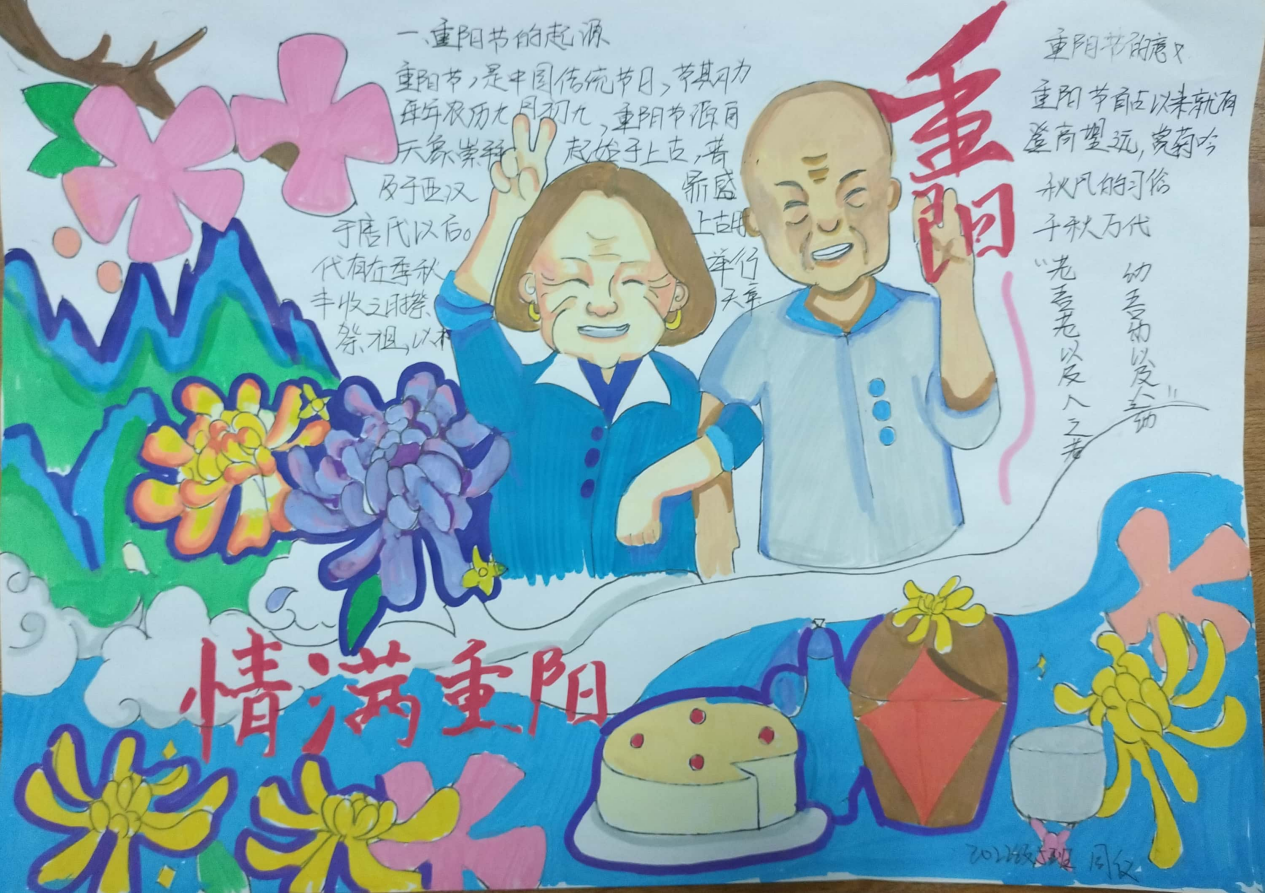 一、重阳节的起源
重阳节,是中国传统节日,节期为
每年农历九月初九,重阳节源自
天象崇拜 起始于上古,普
及于西汉 鼎盛
于唐代以后。 上古时
代有在季秋 举行
丰收之时祭 天帝
祭祖,以
重阳
重阳节的意义
重阳节自古以来就有
登高望远,赏菊吟
秋风的习俗
千秋万代
"老吾老以及人之老
幼吾幼以及人之幼"
情满重阳
级5班 周仪